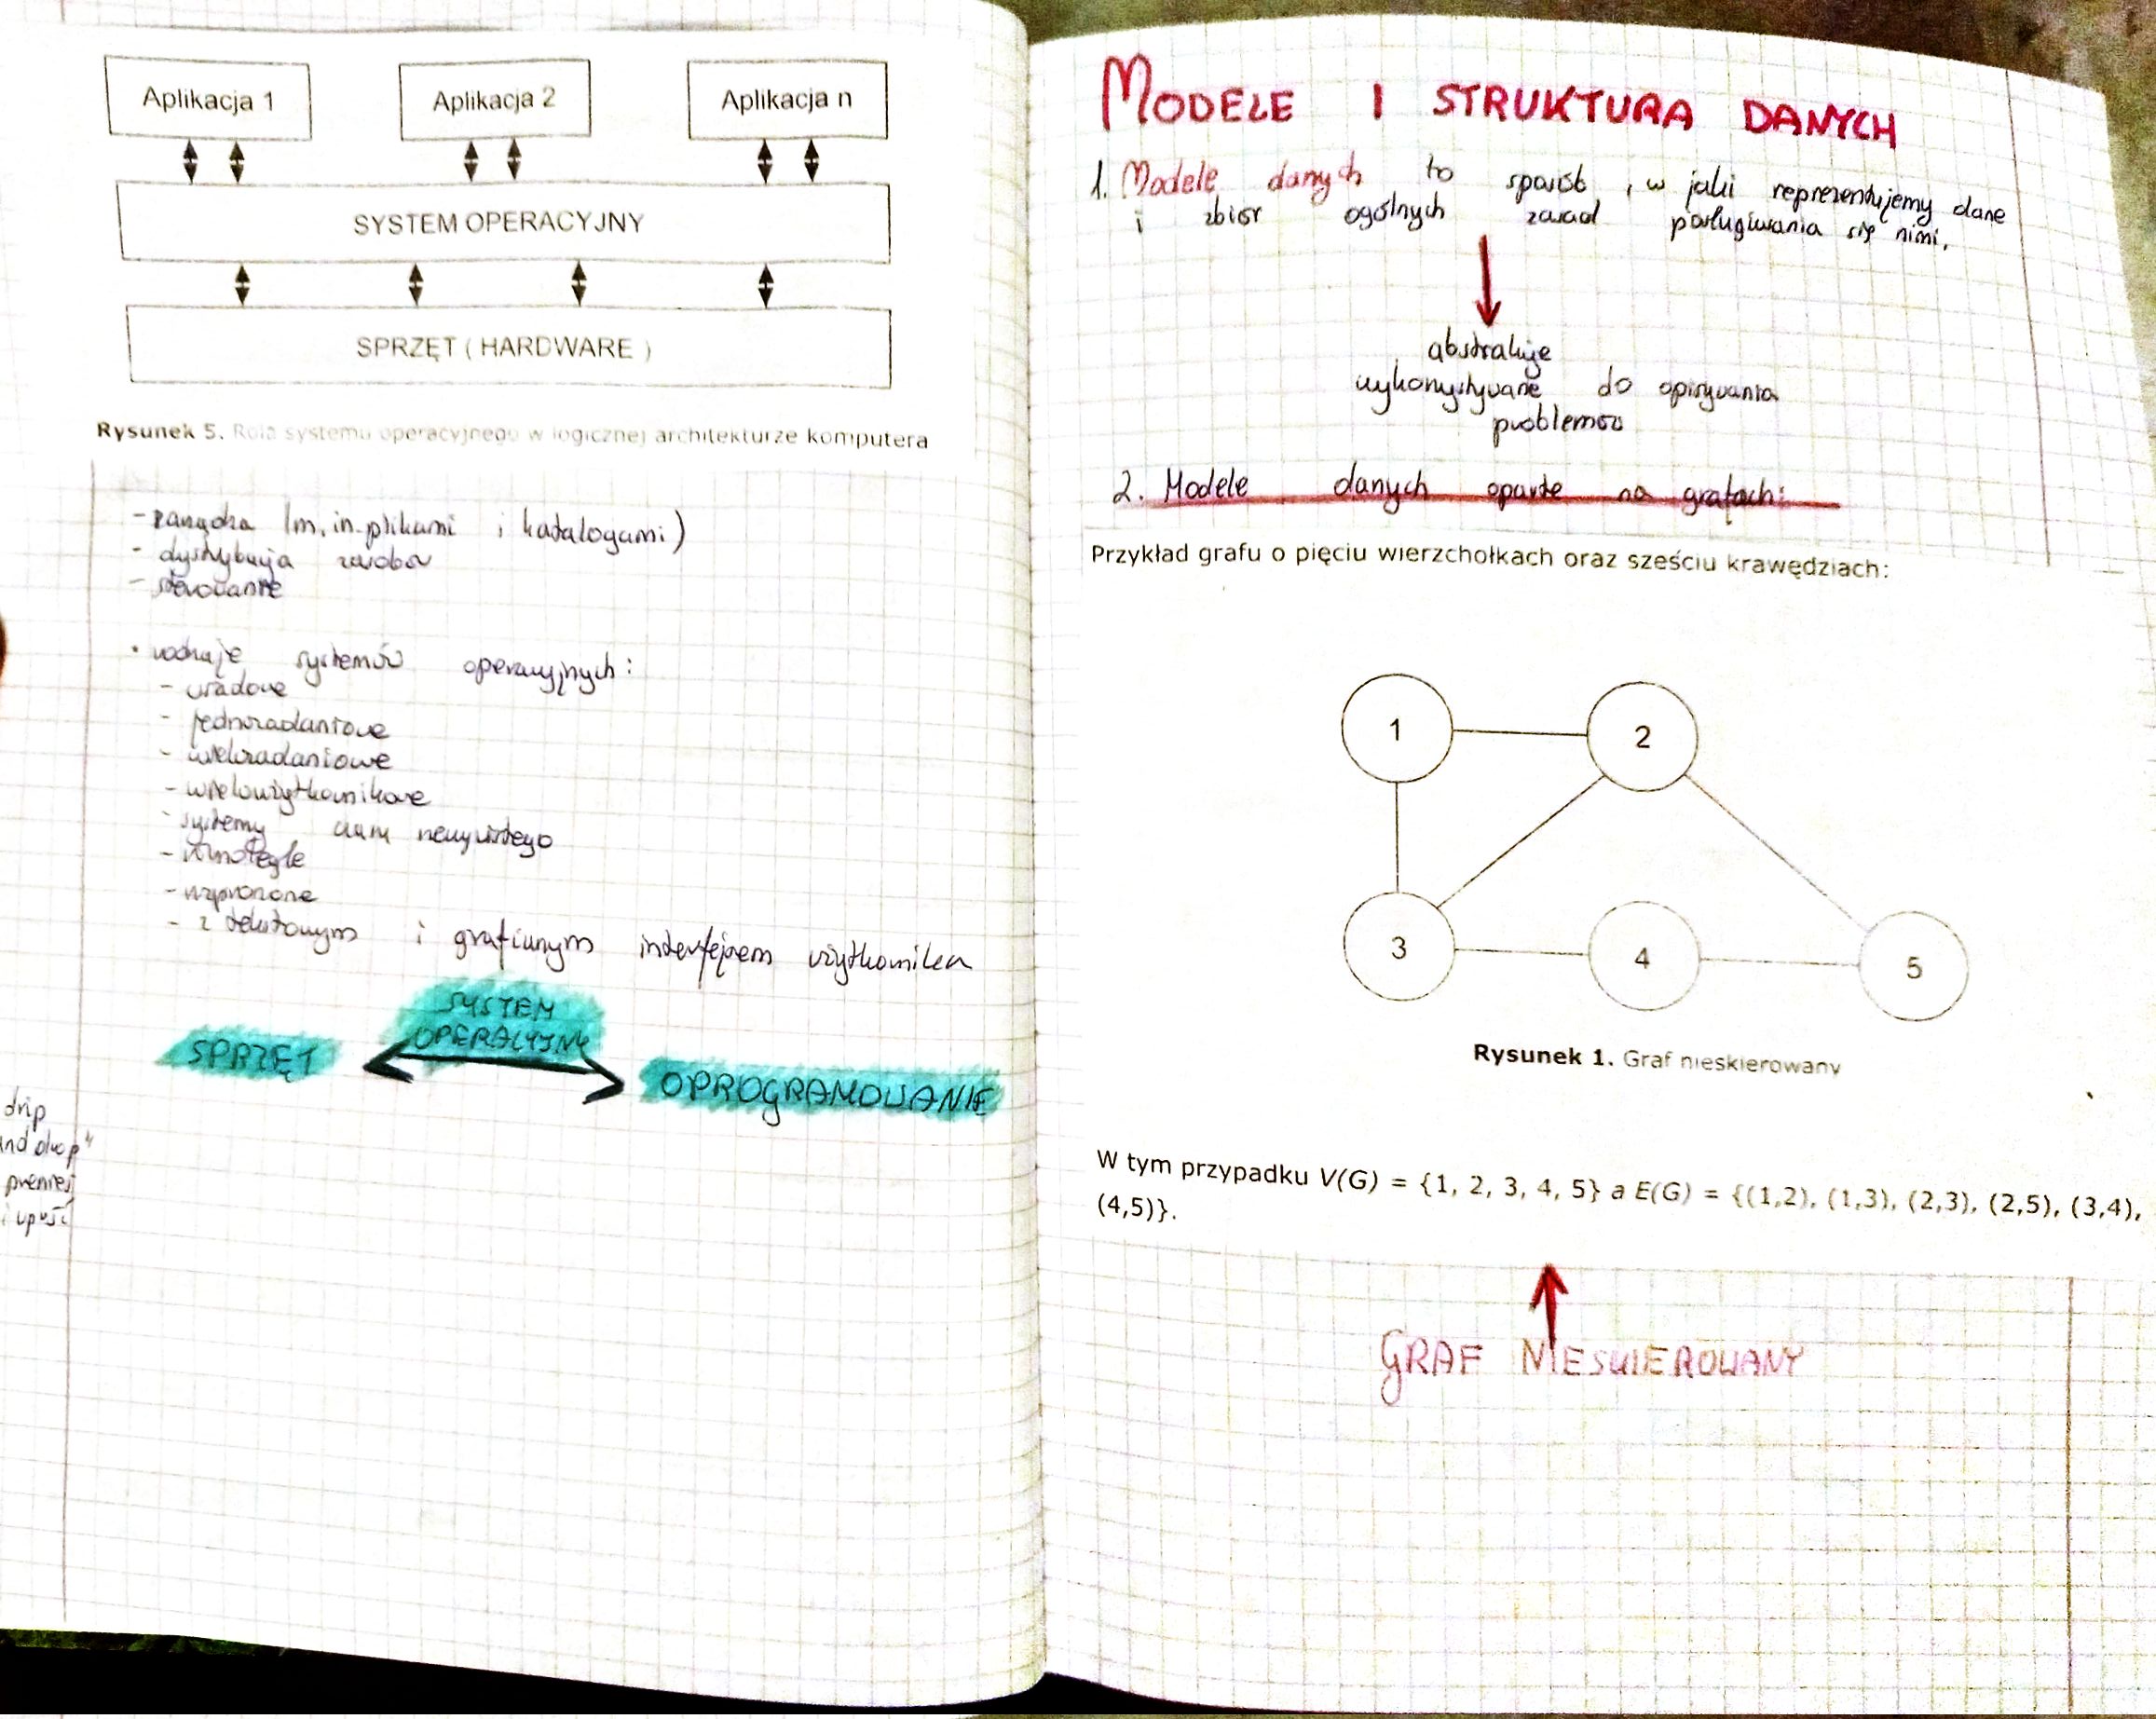 Aplikacja 1
Aplikacja 2
Aplikacja n
SYSTEM OPERACYJNY
SPRZĘT ( HARDWARE )
Rysunek 5. Rola systemu operacyjnego w logicznej architekturze komputera
- zarządza (m.in. plikami i katalogami)
- dystrybucja zasobów
- sterowanie
• rodzaje systemów operacyjnych:
- wsadowe
- jednozadaniowe
- wielozadaniowe
- wieloużytkownikowe
- systemy czasu rzeczywistego
- równoległe
- rozproszone
- z tekstowym i graficznym interfejsem użytkownika
SYSTEM
OPERACYJNY
SPRZĘT
OPROGRAMOWANIE
drop"
i upuść
MODELE I STRUKTURA DANYCH
1. Modele danych to sposób, w jaki reprezentujemy dane
i zbiór ogólnych zasad posługiwania się nimi.
abstrakcje
wykorzystywane do opisywania
problemów
2. Modele danych oparte na grafach:
Przykład grafu o pięciu wierzchołkach oraz sześciu krawędziach:
1
2
3
4
5
Rysunek 1. Graf nieskierowany
W tym przypadku V(G) = {1, 2, 3, 4, 5} a E(G) = {(1,2), (1,3), (2,3), (2,5), (3,4),
(4,5)}.
GRAF NIESKIEROWANY